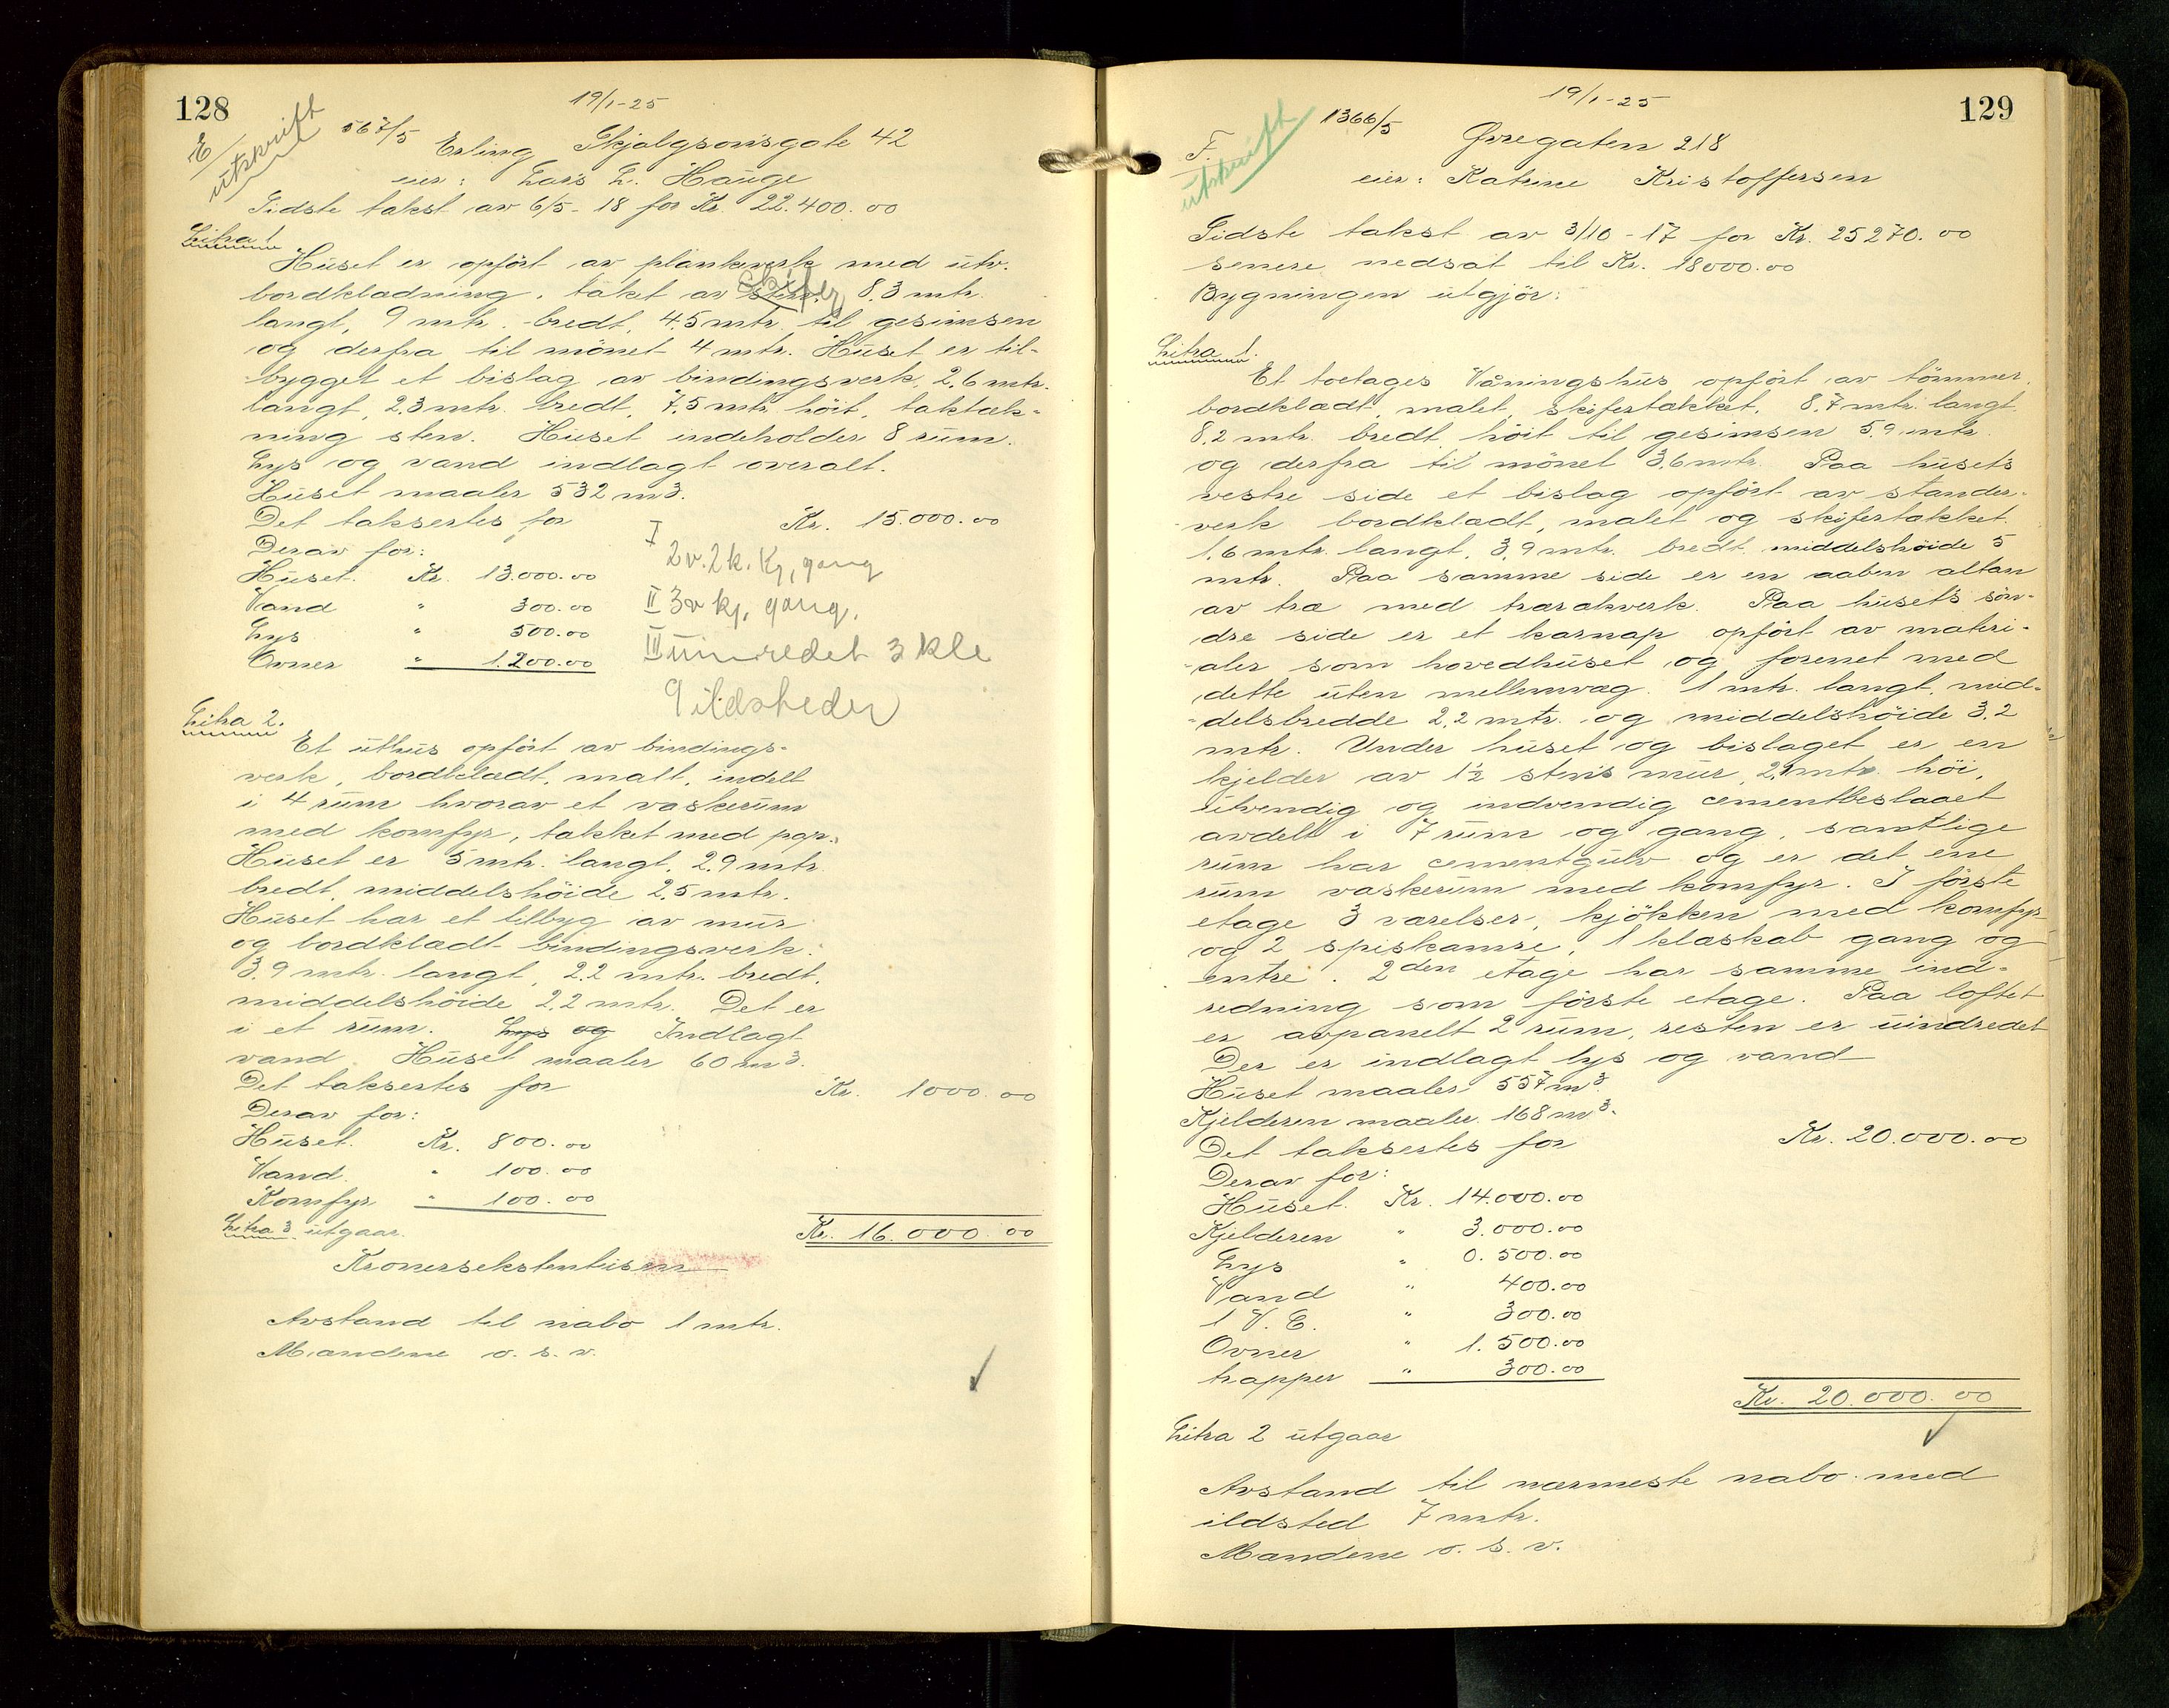 128
19/1-25
E
utskrift
567/5 Erling Skjalgsonsgate 42
eier: Lars L. Hauge
Sidste takst av 6/5-18 for Kr. 22.400.00
Litra 1
Huset er opført av plankeverk med utv.
bordklædning, tăket av sten, skifer 8.3 mtr.
langt, 9 mtr. bredt, 4.5 mtr. til gesimsen
og derfra til mønet 4 mtr. Huset er til-
bygget et bislag av bindingsverk, 2.6 mtr.
langt, 2.3 mtr. bredt, 7.5 mtr. høit, taktæk-
ning sten. Huset indeholder 8 rum.
Lys og vand indlagt overalt.
Huset maaler 532 m3.
Det taksertes for Kr. 15.000.00
Derav for:
Huset. Kr. 13.000.00
Vand " 300.00
Lys " 500.00
Ovner " 1.200.00
I
2 v. 2 k. Kj, gang
II 3 v kj. gang.
III uinredet 3 kle
9 ildsteder
Litra 2.
Et uthus opført av bindings-
verk, bordklædt, malt, indelt
i 4 rum hvorav et vaskerum
med komfyr, tækket med pap.
Huset er 5 mtr. langt, 2.9 mtr.
bredt, middelshöide 2.5 mtr.
Huset har et tilbyg av mur
og bordklædt bindingsverk.
3.9 mtr. langt, 2.2 mtr. bredt.
middelshöide 2.2 mtr. Det er
i et rum. Lys og Indlagt
vand. Huset maaler 60 m3.
Det taksertes for Kr. 1000.00
Derav for:
Huset. Kr. 800.00
Vand. " 100.00
Komfyr " 100.00
Litra 3 utgaar. Kr. 16.000.00
Kronersekstentusen
Avstand til nabo 1 mtr.
Mændene o. s. v.
129
19/1-25
F.
utskrift
1366/5 Øvregaten 218
eier: Katrine Kristoffersen
Sidste takst av 3/10-17 for Kr. 25270.00
senere nedsat til Kr. 18000.00
Bygningen utgjör:
Litra 1.
Et toetages Våningshus opfört av tömmer,
bordklædt, malet, skifertækket, 8.7 mtr. langt
8.2 mtr. bredt, höit til gesimsen 5.9 mtr.
og derfra til mönet 3.6 mtr. Paa husets
vestre side et bislag opfört av stander-
verk bordklædt, malet og skifertækket.
1.6 mtr. langt, 3.9 mtr. bredt, middelshöide 5
mtr. Paa samme side er en aaben altan
av træ med trærækverk. Paa husets sön-
dre side er et karnap opfört av materi-
aler som hovedhuset og forenet med
dette uten mellemvæg. 1 mtr. langt, mid-
delsbredde 2.2 mtr. og middelshöide 3.2
mtr. Under huset og bislaget er en
kjelder av 1½ stens mur, 2.1 mtr. höi,
utvendig og indvendig cementbeslaaet
avdelt i 7 rum og gang, samtlige
rum har cementgulv og er det ene
rum vaskerum med komfyr. I förste
etage 3 værelser, kjökken med komfyr
og 2 spiskamre, 1 klæskab gang og
entre. 2den etage har samme ind-
redning som förste etage. Paa loftet
er avpanelt 2 rum, resten er uindredet
Der er indlagt lys og vand
Huset maaler 557 m3.
Kjelderen maaler 168 m3.
Det taksertes for Kr. 20.000.00
Derav for:
Huset. Kr. 14.000.00
Kjelderen " 3.000.00
Lys " 0.500.00
Vand " 400.00
1 V. C. " 300.00
Ovner " 1.500.00
trapper " 300.00
Kr. 20.000.00
Litra 2 utgaar
Avstand til nærmeste nabo med
ildsted 7 mtr.
Mændene o. s. v.